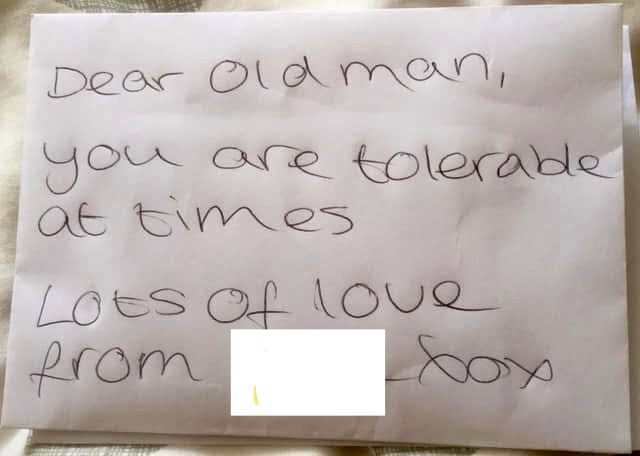 Dear Old man,
you are tolerable
at times
Lots of love
from xox